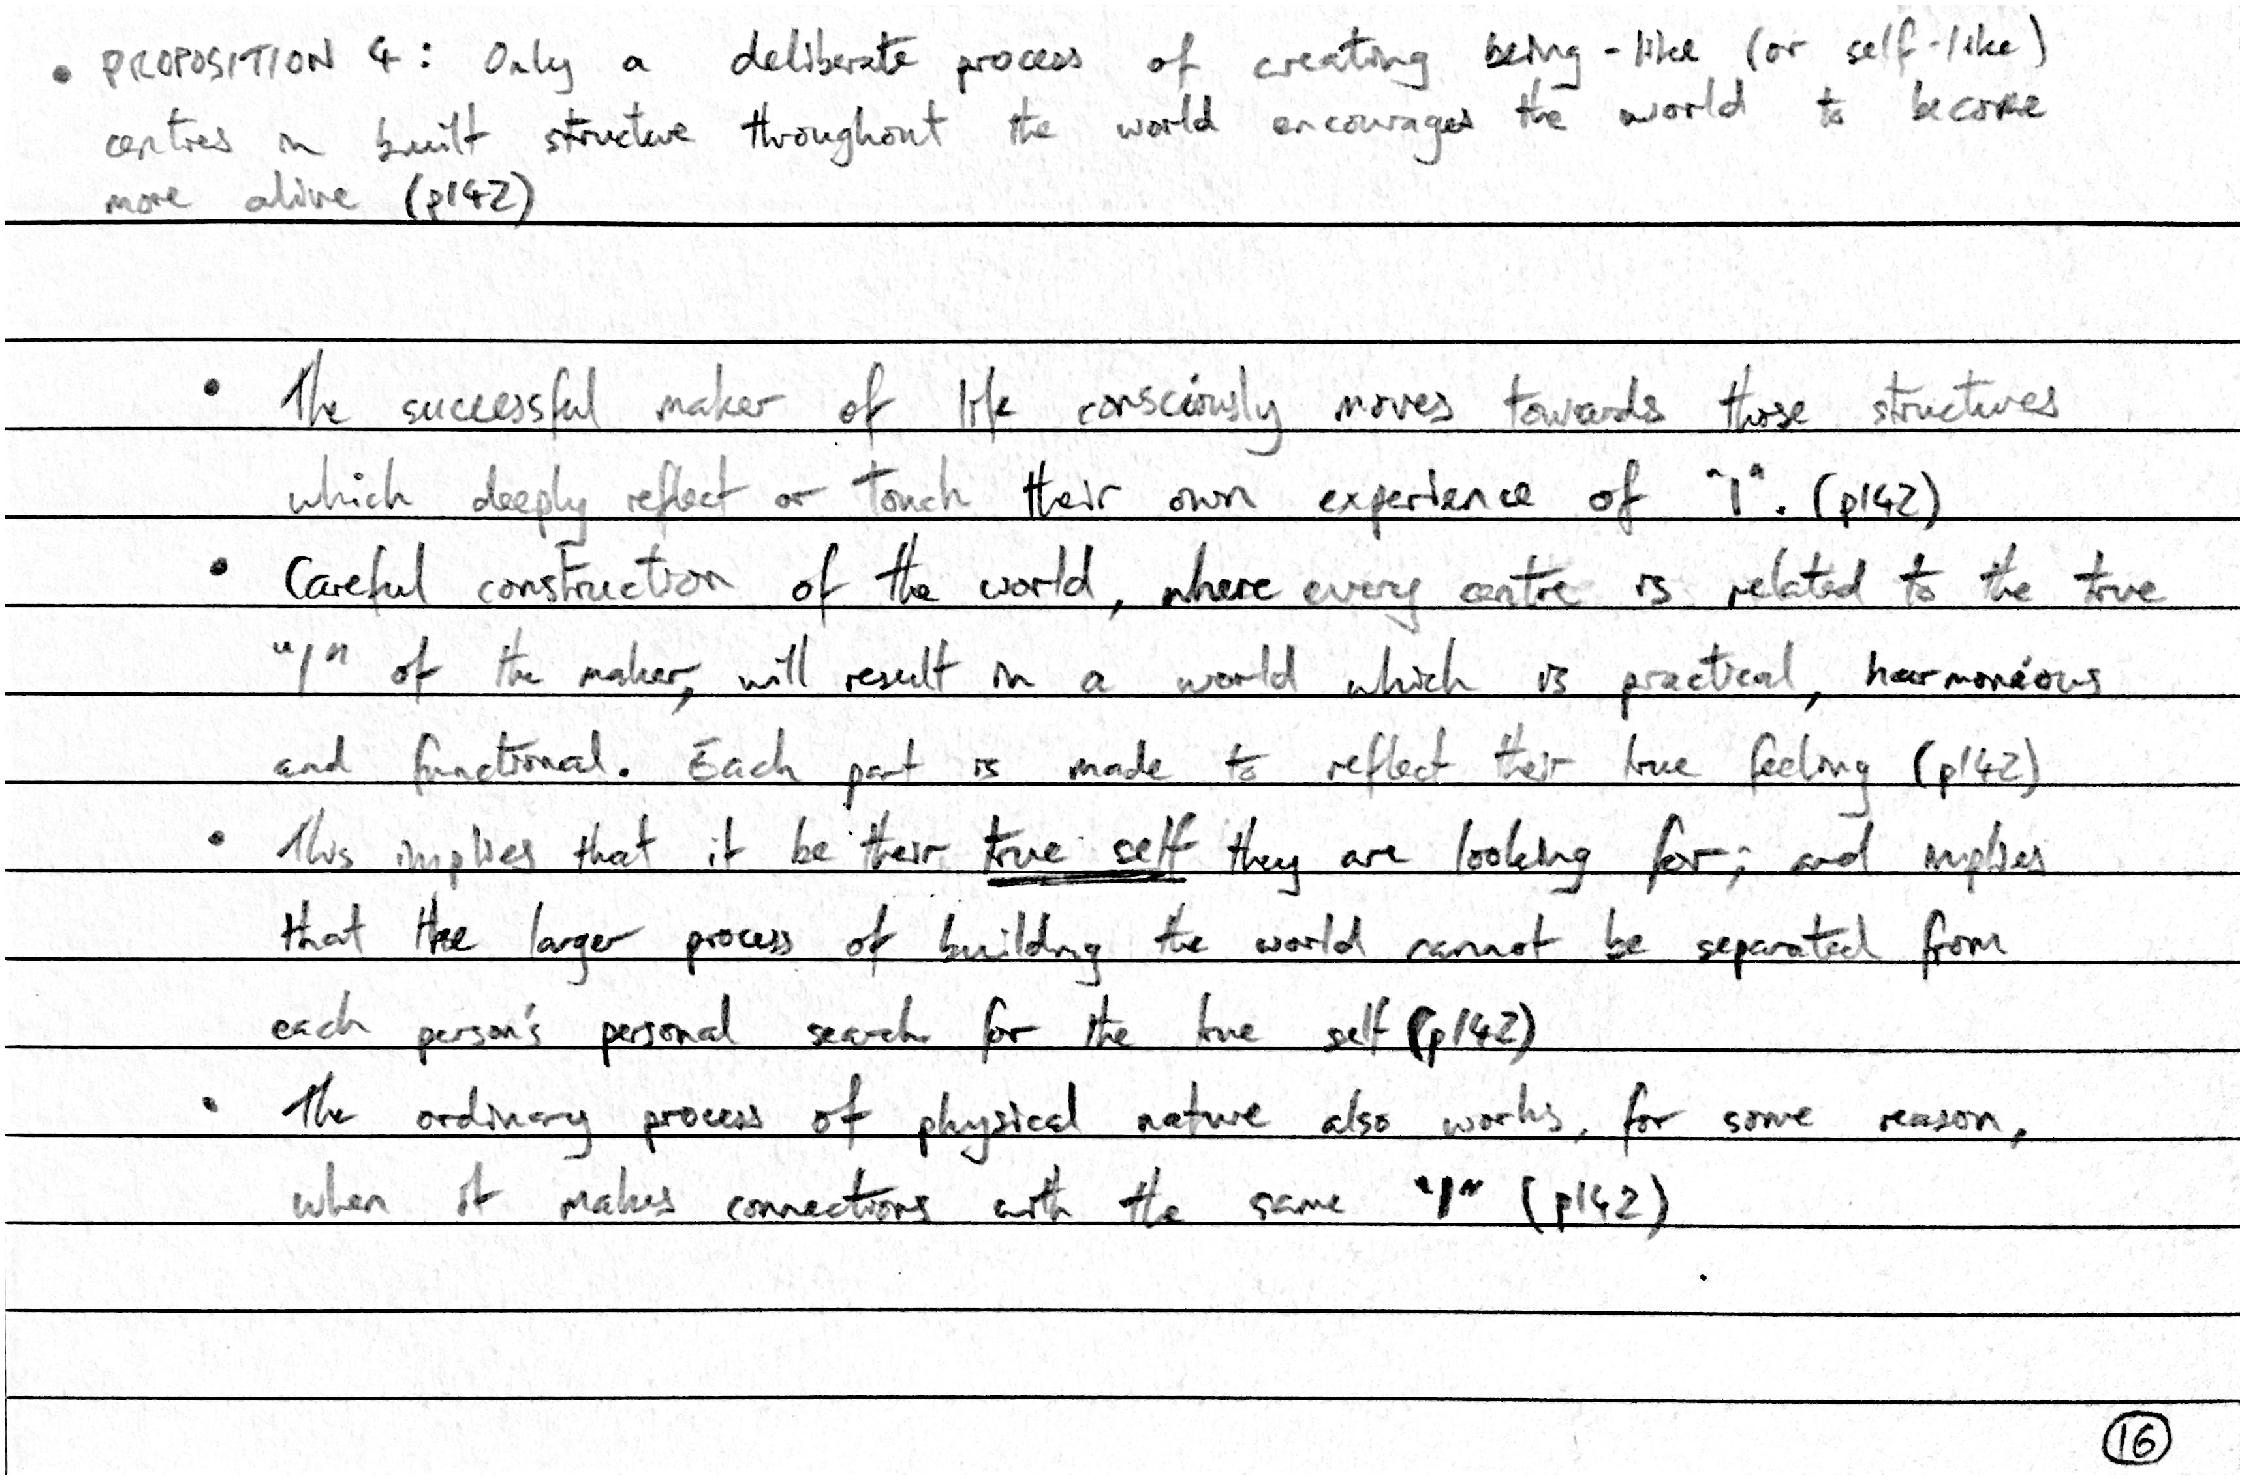 • PROPOSITION 4: Only a deliberate process of creating being-like (or self-like)
centres in built structure throughout the world encourages the world to become
more alive (p142)
• The successful maker of life consciously moves towards those structures
which deeply reflect or touch their own experience of "I". (p142)
• Careful construction of the world, where every centre is related to the true
"I" of the maker, will result in a world which is practical, harmonious
and functional. Each part is made to reflect their true feeling (p142)
• This implies that it be their true self they are looking for; and implies
that the larger process of building the world cannot be separated from
each person's personal search for the true self (p142)
• The ordinary process of physical nature also works, for some reason,
when it makes connections with the same "I" (p142)
16